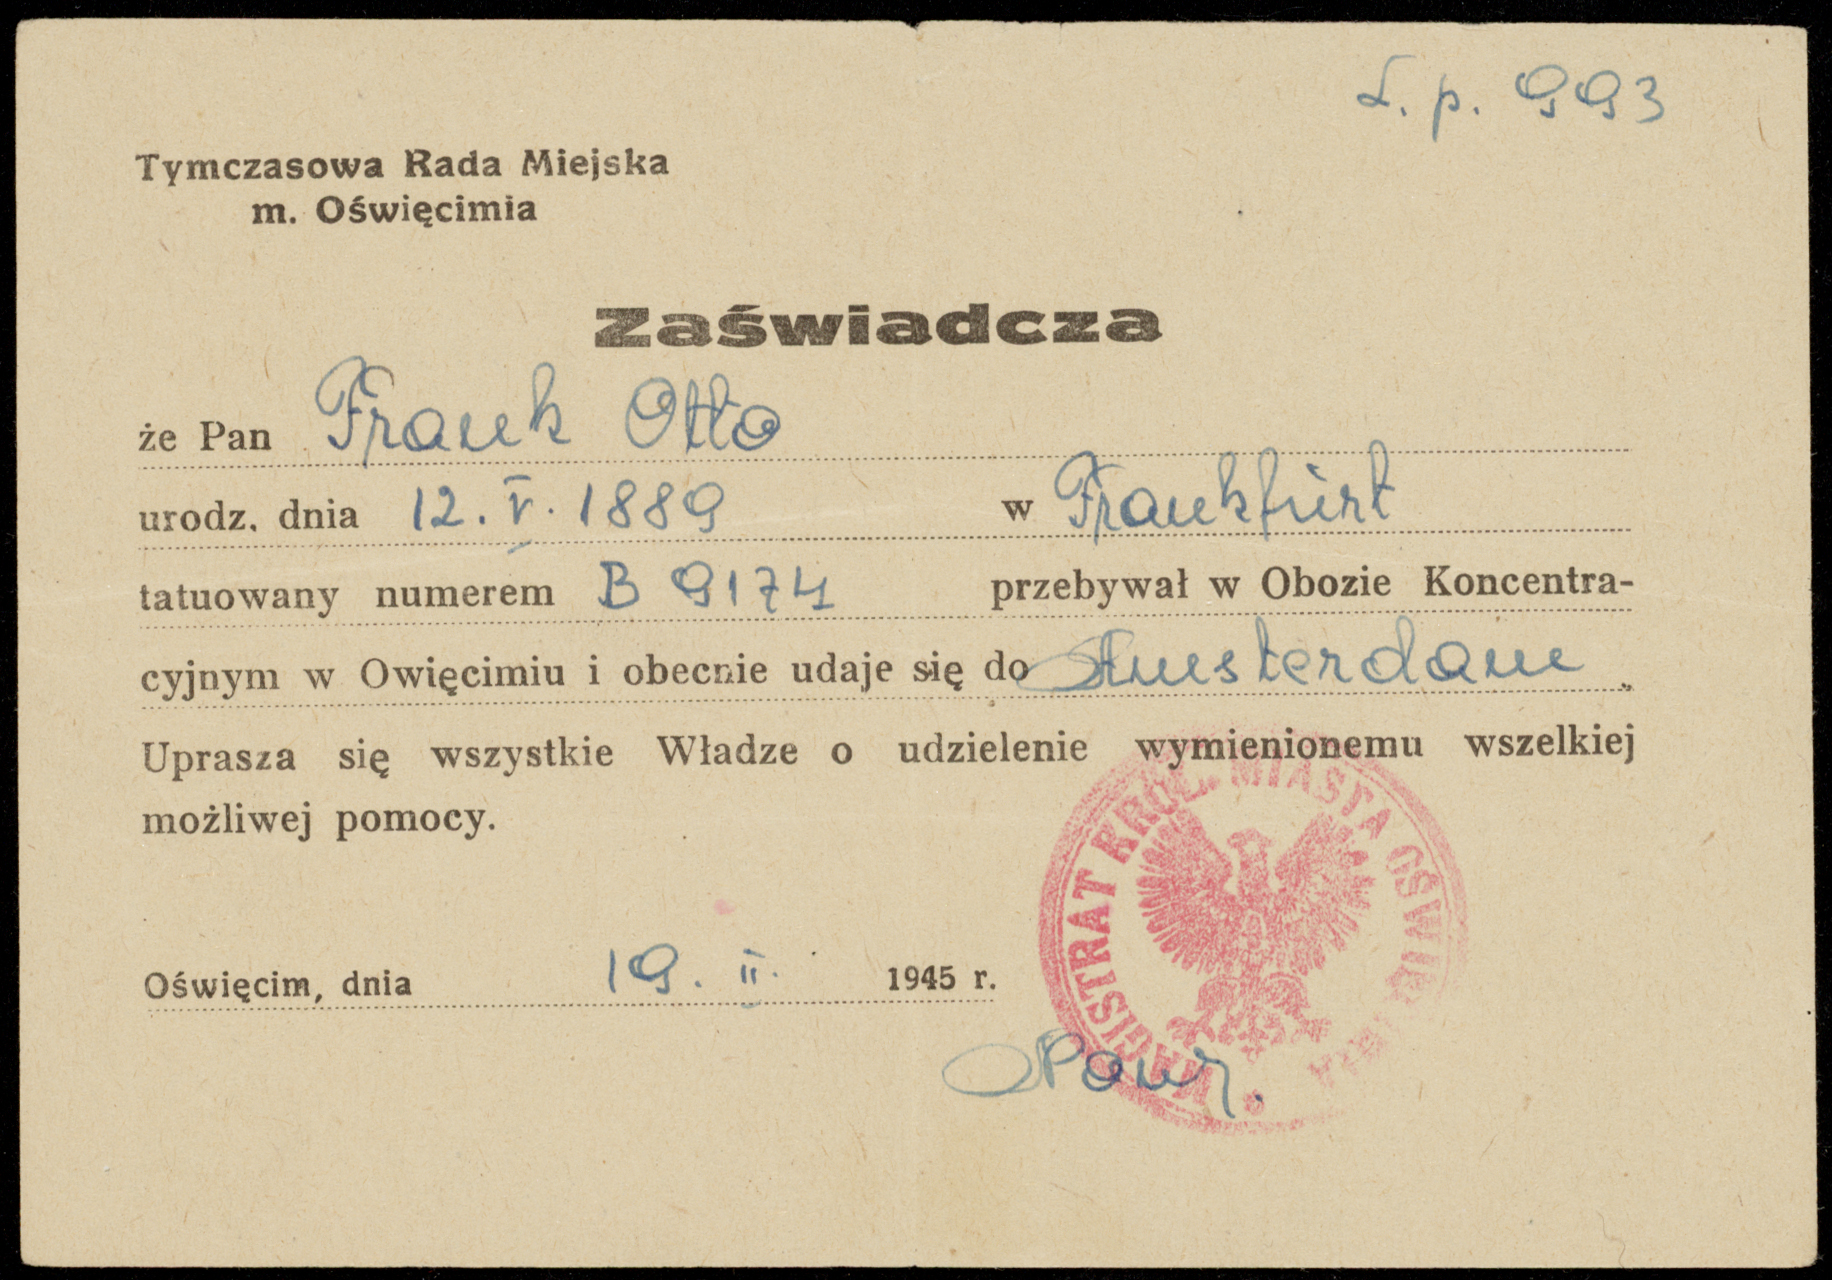 L. p. 993
Tymczasowa Rada Miejska
m. Oświęcimia
Zaświadcza
że Pan Frank Otto
urodz. dnia 12. V. 1889 w Frankfurt
tatuowany numerem B 9174 przebywał w Obozie Koncentra-
cyjnym w Owięcimiu i obecnie udaje się do Amsterdam
Uprasza się wszystkie Władze o udzielenie wymienionemu wszelkiej
możliwej pomocy.
Oświęcim, dnia 19. II. 1945 r.
MAGISTRAT KRÓL. MIASTA